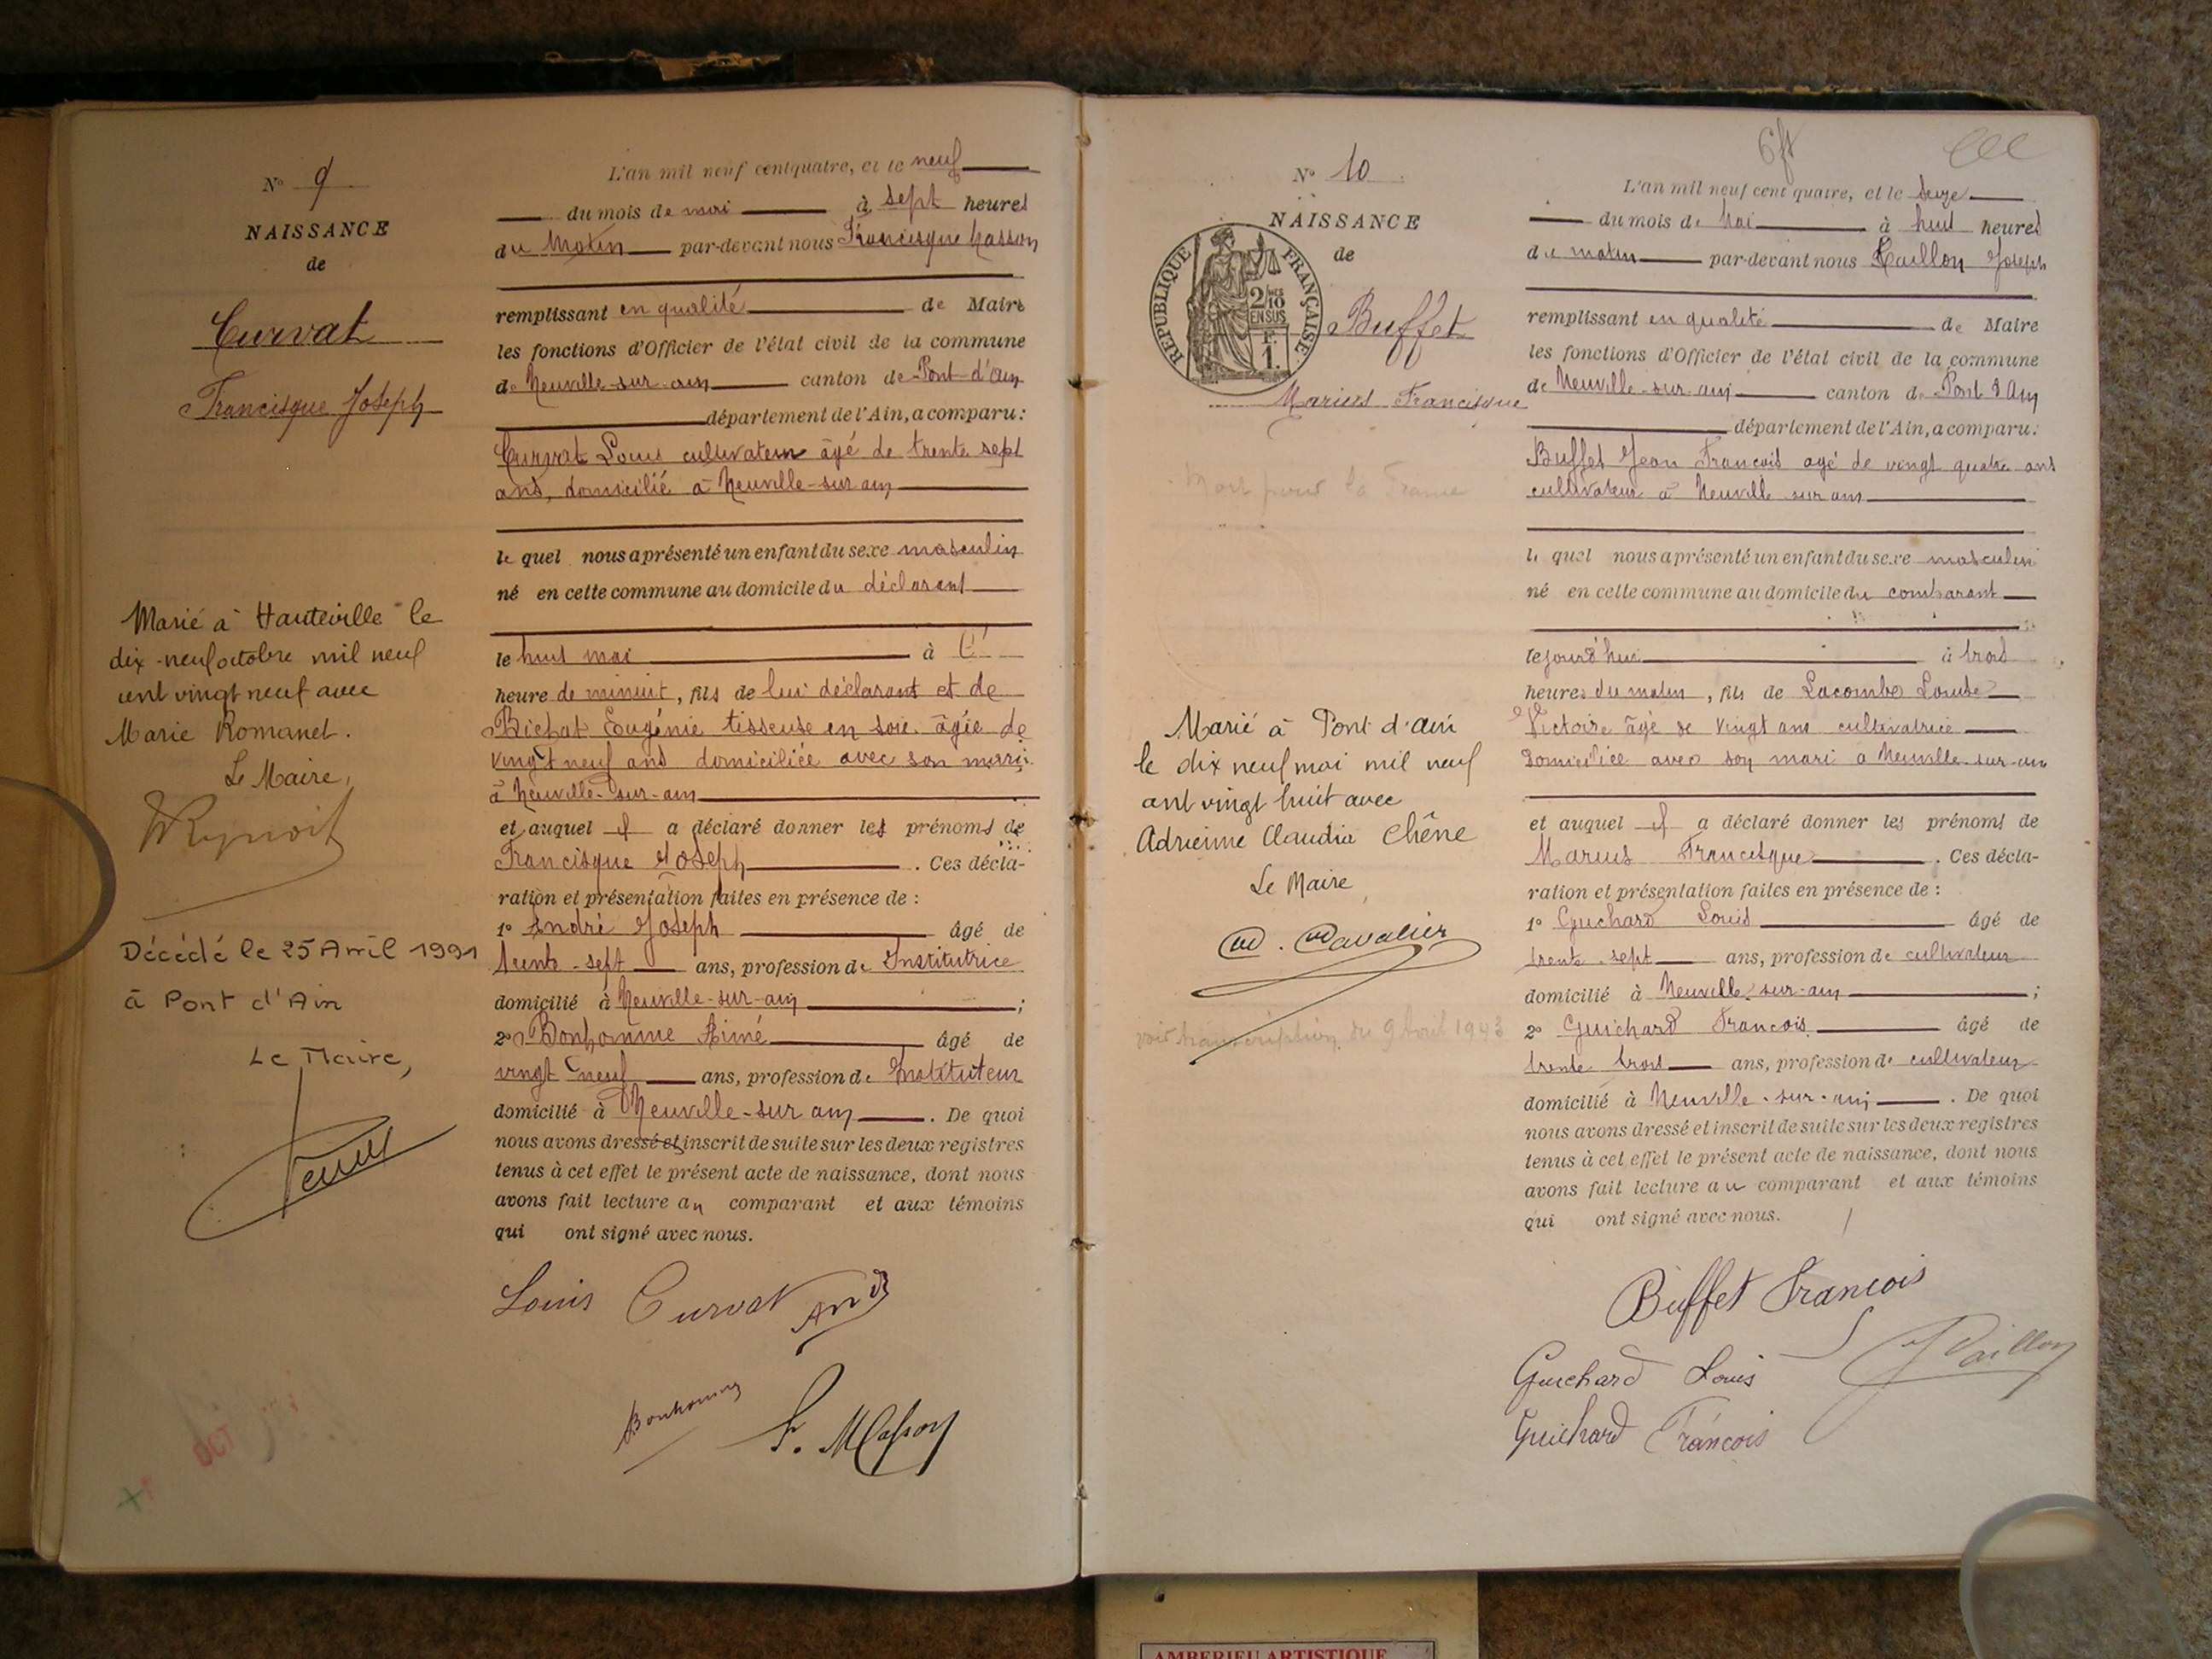 N° 9
NAISSANCE
de
Curvat
Francisque Joseph
Marié à Hauteville le
dix-neuf octobre mil neuf
cent vingt neuf avec
Marie Romanet.
Le Maire,
Décédé le 25 Avril 1991
à Pont d'Ain
Le Maire,
OCT
L'an mil neuf cent quatre, et le neuf
du mois de mai à sept heures
du matin par-devant nous Francisque Masson
remplissant en qualité de Maire
les fonctions d'Officier de l'état civil de la commune
de Neuville-sur-ain canton de Pont-d'ain
département de l'Ain, a comparu:
Curvat Louis cultivateur âgé de trente sept
ans, domicilié à Neuville-sur ain
le quel nous a présenté un enfant du sexe masculin
né en cette commune au domicile du déclarant
le huit mai à
heure de minuit, fils de lui déclarant et de
Bichat Eugénie tisseuse en soie âgée de
vingt neuf ans domiciliée avec son mari
à Neuville-sur-ain
et auquel il a déclaré donner les prénoms de
Francisque Joseph. Ces décla-
ration et présentation faites en présence de :
1° André Joseph âgé de
trente-sept ans, profession de Institutrice
domicilié à Neuville-sur-ain ;
2° Bonhomme Aimé âgé de
vingt neuf ans, profession de Instituteur
domicilié à Neuville-sur ain. De quoi
nous avons dressé et inscrit de suite sur les deux registres
tenus à cet effet le présent acte de naissance, dont nous
avons fait lecture au comparant et aux témoins
qui ont signé avec nous.
Louis Curvat
Bonhomme
F. Masson
N° 10
NAISSANCE
de
RÉPUBLIQUE FRANÇAISE
2/10
EN SUS
1.
Buffet
Marius Francisque
Mort pour la France
Marié à Pont d'ain
le dix neuf mai mil neuf
cent vingt huit avec
Adrienne Claudia Chêne
Le Maire
Cavalier
voir transcription du 9 Avril 1943
L'an mil neuf cent quatre, et le seize
du mois de Mai à huit heures
du matin par-devant nous Joseph
remplissant en qualité de Maire
les fonctions d'Officier de l'état civil de la commune
de Neuville-sur-ain canton de Pont d'Ain
département de l'Ain, a comparu:
Buffet Jean Francois agé de vingt quatre ans
cultivateur à Neuville sur ain
le quel nous a présenté un enfant du sexe masculin
né en cette commune au domicile du comparant
le jourd'hui à trois
heures du matin, fils de Lacombe Louise
Victoire âgé de vingt ans cultivatrice
domiciliée avec son mari à Neuville-sur-ain
et auquel il a déclaré donner les prénoms de
Marius Francisque. Ces décla-
ration et présentation faites en présence de :
1° Guichard Louis âgé de
trente-sept ans, profession de cultivateur
domicilié à Neuville-sur-ain ;
2° Guichard Francois âgé de
trente trois ans, profession de cultivateur
domicilié à Neuville-sur-ain. De quoi
nous avons dressé et inscrit de suite sur les deux registres
tenus à cet effet le présent acte de naissance, dont nous
avons fait lecture au comparant et aux témoins
qui ont signé avec nous.
Buffet Francois
Guichard Louis
Guichard Francois
AMBERIEU ARTISTIQUE